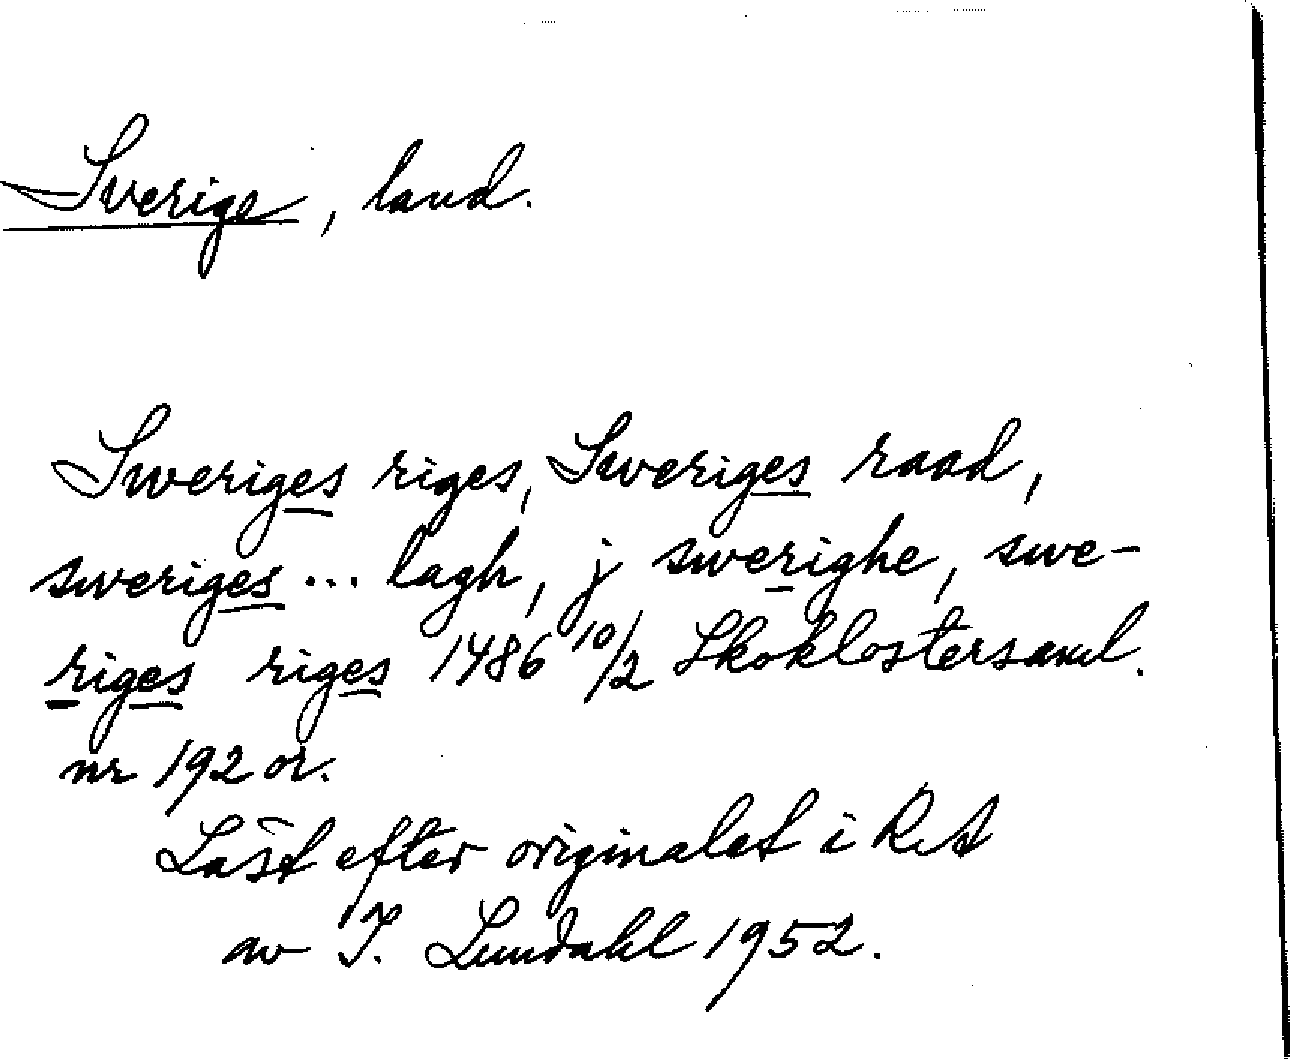 Sverige, land.
Sweriges riges, Sweriges raad,
sweriges... lagh, j swerighe, swe-
riges riges 1486 10/2 Skoklostersaml.
nr 192 or.
Läst efter originalet i RA
av I. Lundahl 1952.